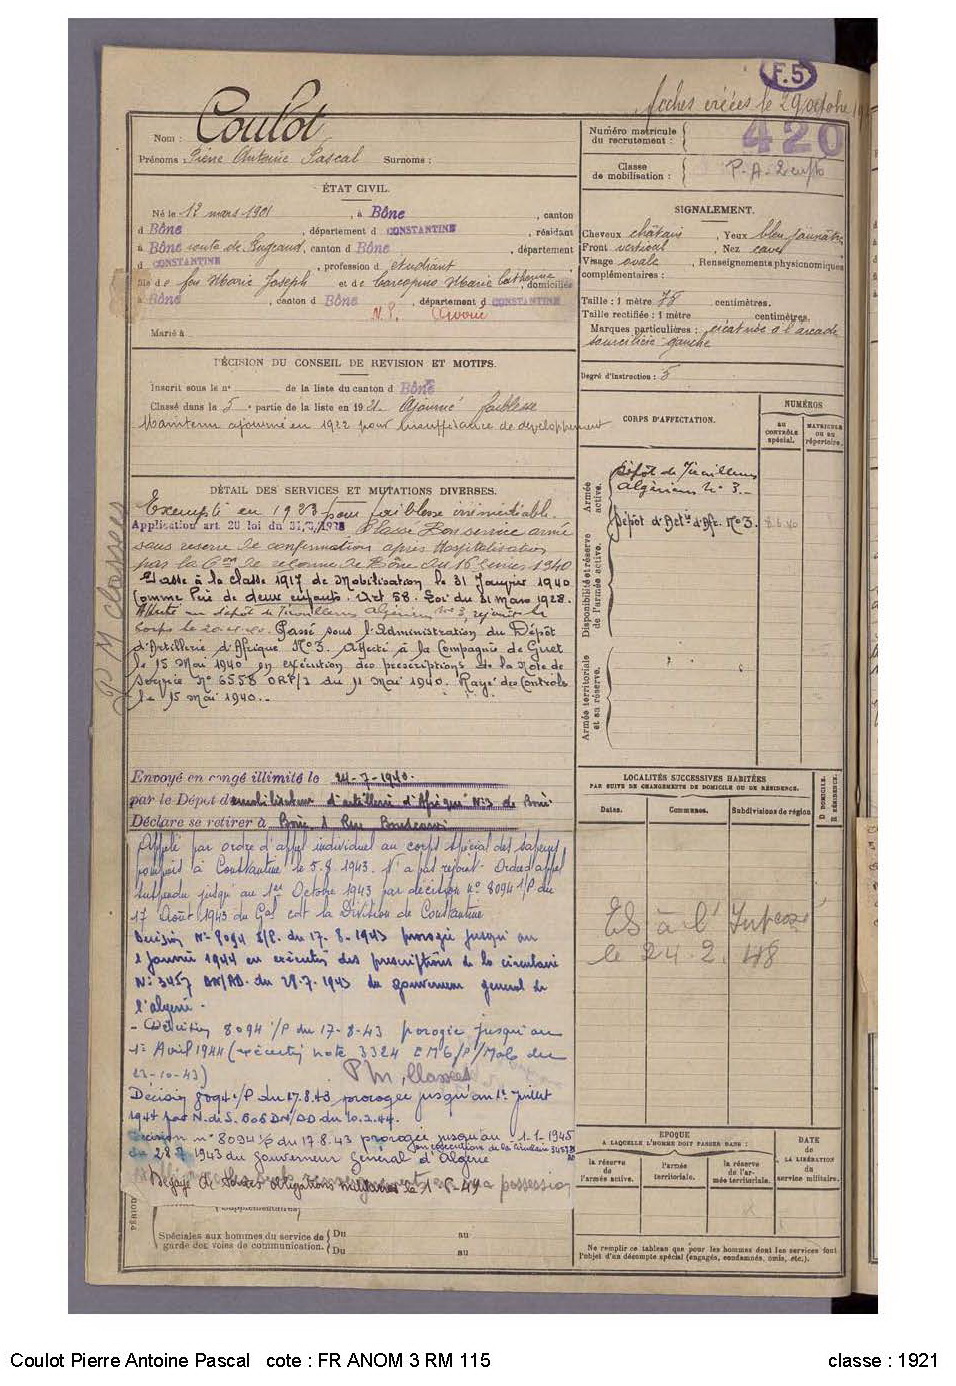 F.5
fiches créées le 29 octobre
Nom : Coulot
Prénoms : Pierre Antoine Pascal Surnoms :
Numéro matricule
du recrutement :
420
Classe
de mobilisation :
P. A. 2 enfts
ÉTAT CIVIL.
Né le 12 mars 1901, à Bône, canton
d Bône, département d CONSTANTINE, résidant
à Bône route de Bugeaud, canton d Bône, département
d CONSTANTINE, profession d étudiant
fils de feu Marie Joseph et de Carcopino Marie Catherine, domiciliés
à Bône, canton d Bône, département d CONSTANTINE
N. P. Avoué
Marié à
SIGNALEMENT.
Cheveux châtain, Yeux bleu jaunâtre
Front vertical, Nez cave
Visage ovale, Renseignements physionomiques
complémentaires :
Taille : 1 mètre 75 centimètres.
Taille rectifiée : 1 mètre centimètres.
Marques particulières : cicatrice à l'arcade
sourcilière gauche
Degré d'instruction : 5
DÉCISION DU CONSEIL DE REVISION ET MOTIFS.
Inscrit sous le n° de la liste du canton d Bône
Classé dans la 5e partie de la liste en 1921 Ajourné faiblesse
Maintenu ajourné en 1922 pour insuffisance de développement
CORPS D'AFFECTATION.
NUMÉROS
AU CONTRÔLE spécial.
MATRICULE OU AU répertoire.
Armée active.
Dépôt de Tirailleurs
Algériens N° 3
Dépôt d'Artie d'Af. N°3.
Disponibilité et réserve de l'armée active.
Armée territoriale et sa réserve.
DÉTAIL DES SERVICES ET MUTATIONS DIVERSES.
Exempté en 1923 pour faiblesse irrémédiable.
Application art. 20 loi du 31/3/1928 Classé Bon service armé
sous reserve de confirmation après hospitalisation
par la Con de reforme de Bône du 16 1940
Classé à la classe 1917 de Mobilisation le 31 Janvier 1940
Comme Père de deux enfants. Art 58. Loi du 31 mars 1928.
Affecté au dépôt de Tirailleurs Algériens N° 3, rejoint le
corps le Passé sous l'Administration du Dépôt
d'Artillerie d'Afrique N°3. Affecté à la Compagnie de Guet
le 15 Mai 1940 en exécution des prescriptions de la Note de
Service N° 6558 ORP/2 du 11 Mai 1940. Rayé des Controls
le 15 Mai 1940.
P M classees
Envoyé en congé illimité le 24-7-1940.
par le Dépot démobilisateur d'artillerie d'Afrique N°3 de Bône
Déclare se retirer à Bône, 1 Rue
Appelé par ordre d'appel individuel au corps spécial des sapeurs
pompiers à Constantine le 5.8.1943. N'a pas rejoint. Ordre d'appel
suspendu jusqu'au 1er Octobre 1943 par décision n° 8094 1/P du
17 Août 1943 du Gal cdt la Division de Constantine
Décision N° 8094 1/P. du 17-8-1943 prorogée jusqu'au
1 Janvier 1944 en exécution des prescriptions de la circulaire
N° 3457 DN/AD. du 28.7.1943 du gouverneur general de
l'algérie.
- Décision 8094 1/P du 17-8-43 prorogée jusqu'au
1er Avril 1944 (exécution note 3324 EMG/P/Mob du
23-10-43)
P M, Classées
Décision 8094 1/P du 17.8.43 prorogée jusqu'au 1er Juillet
1944 par N. de S. 606 DN/AD du 10.3.44.
Décision n° 8094 1/P du 17.8.43 prorogée jusqu'au 1-1-1945
en exécution de la Circulaire 3457
du 28 7 1943 du gouverneur Général d'Algérie
Dégagé de toutes obligations militaires le
possession
LOCALITÉS SUCCESSIVES HABITÉES
PAR SUITE DE CHANGEMENTS DE DOMICILE OU DE RÉSIDENCE.
D DOMICILE. R RÉSIDENCE.
Dates.
Communes.
Subdivisions de région
le 24.2.48
EPOQUE
A LAQUELLE L'HOMME DOIT PASSER DANS :
la réserve de l'armée active.
l'armée territoriale.
la réserve de l'armée territoriale.
DATE
DE LA LIBÉRATION
du
service militaire.
PÉRIOD
supplémentaires
Spéciales aux hommes du service de
garde des voies de communication.
Du au
Du au
Ne remplir ce tableau que pour les hommes dont les services font
l'objet d'un décompte spécial (engagés, condamnés, omis, etc.).
Coulot Pierre Antoine Pascal cote : FR ANOM 3 RM 115
classe : 1921